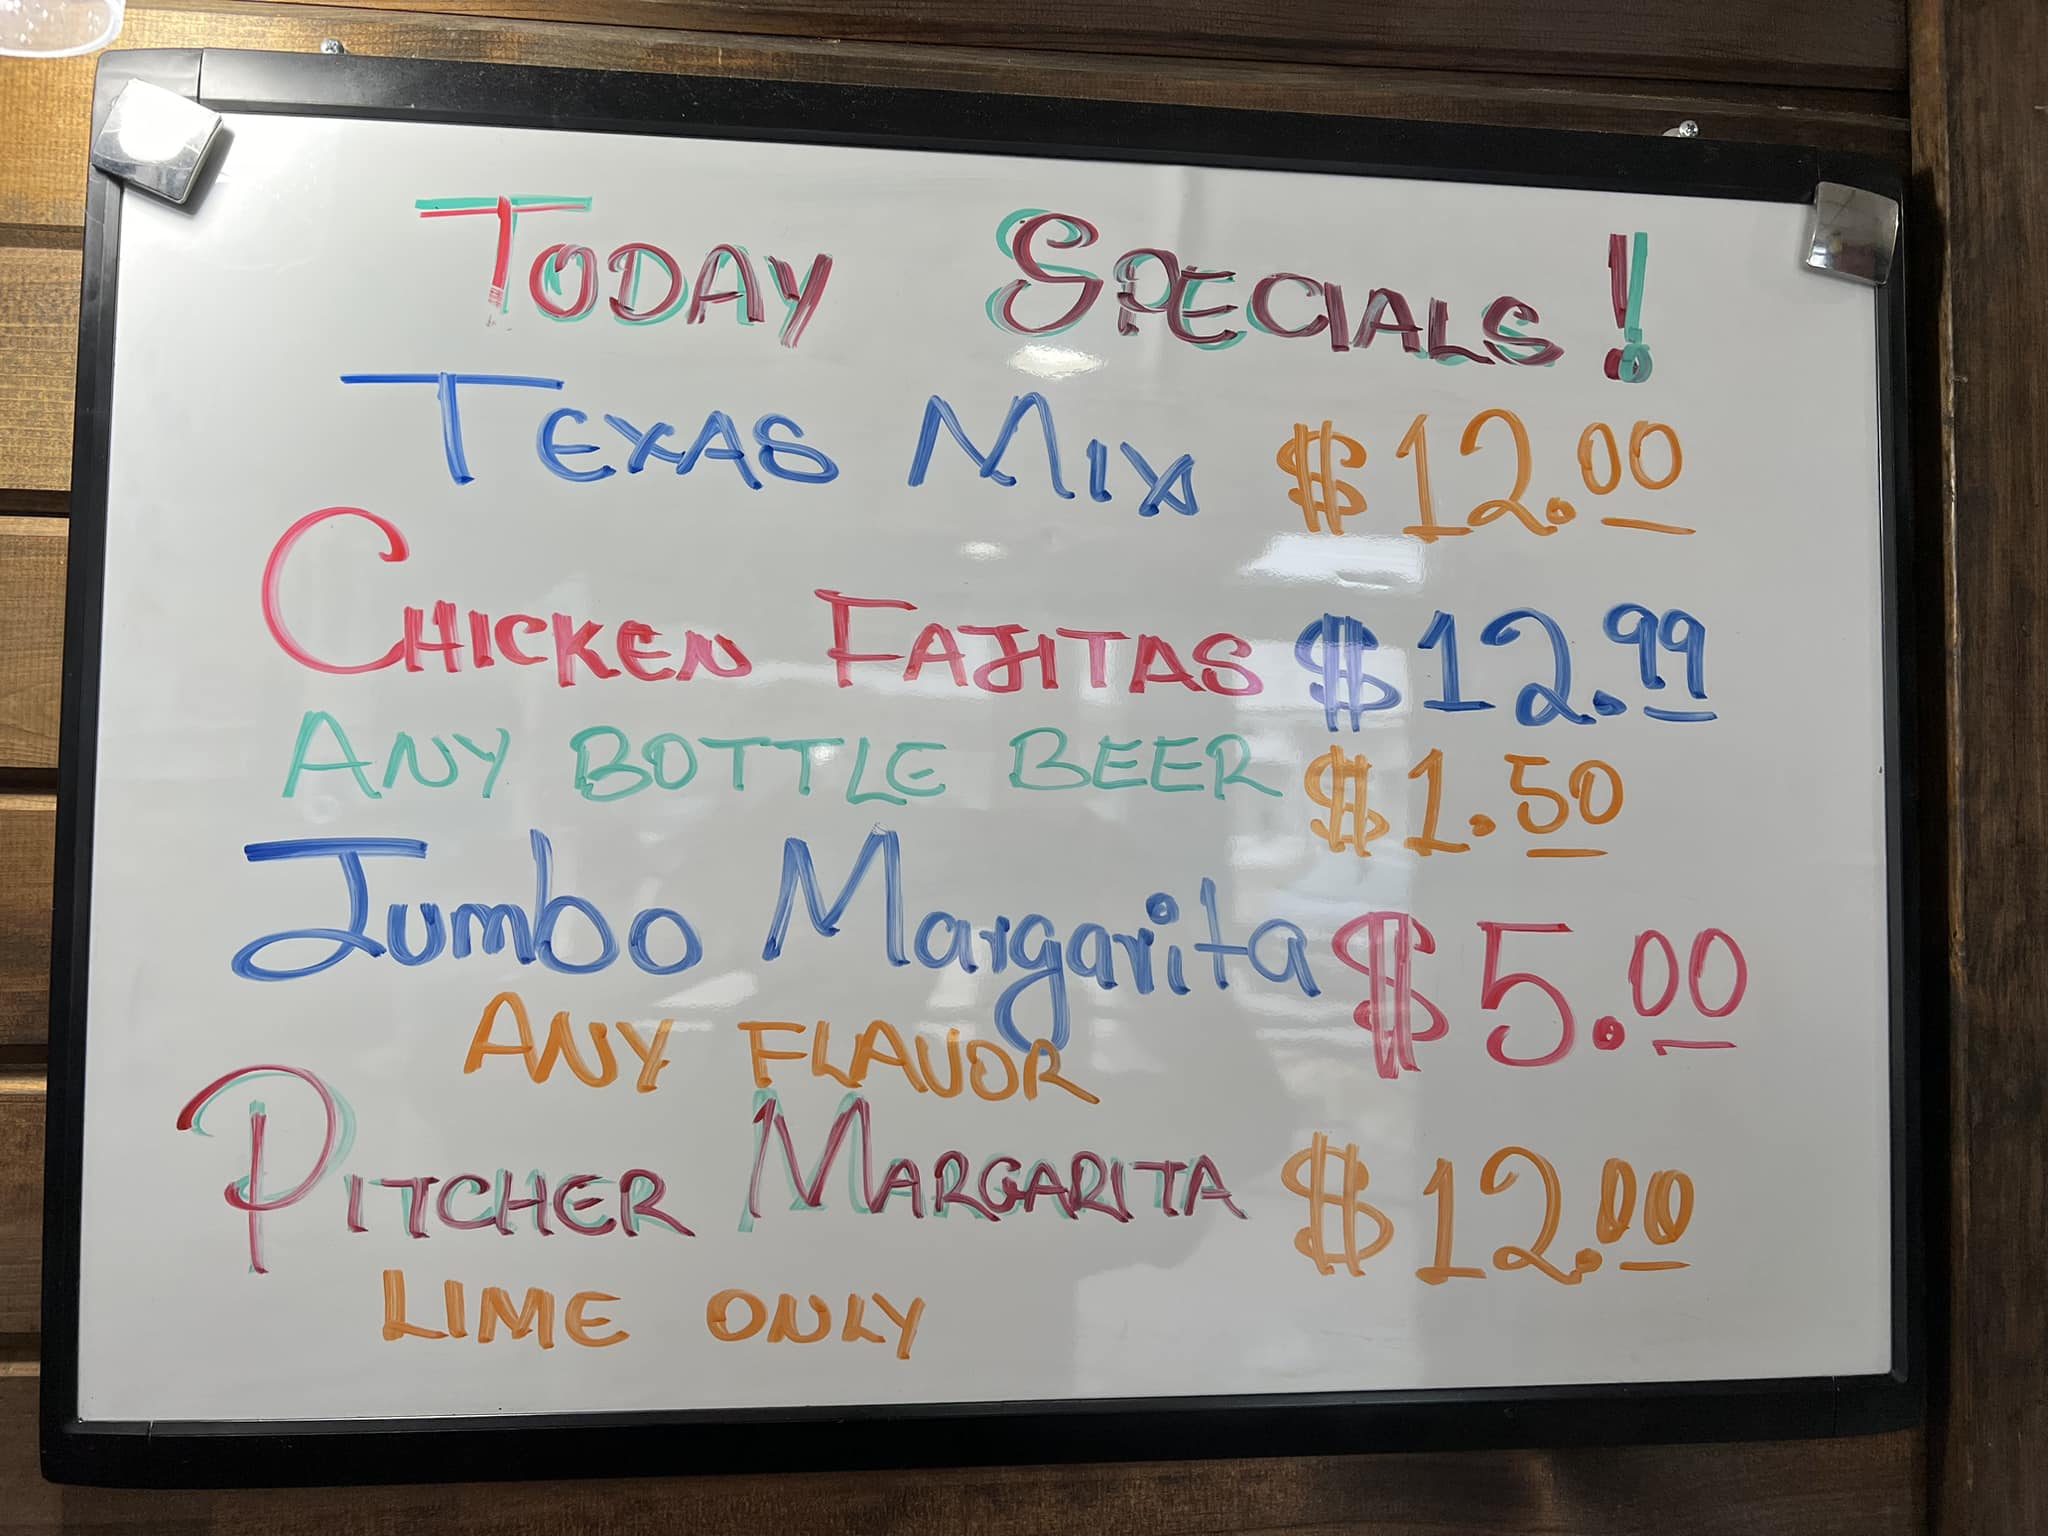 TODAY SPECIALS!
TEXAS MIX $12.00
CHICKEN FAJITAS $12.99
ANY BOTTLE BEER $1.50
Jumbo Margarita $5.00
ANY FLAVOR
PITCHER MARGARITA $12.00
LIME ONLY